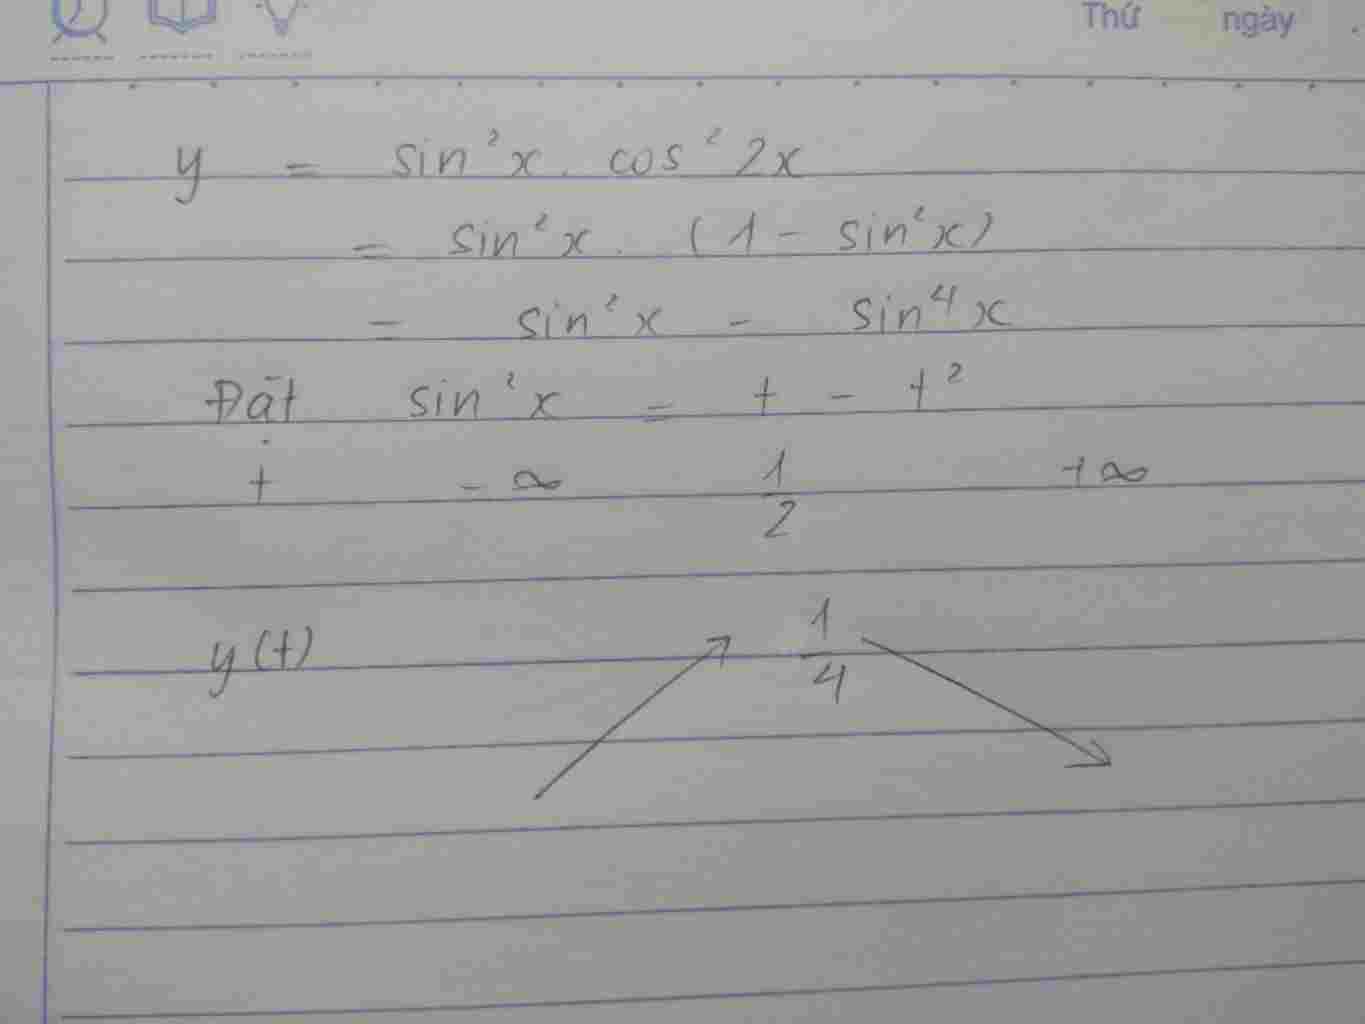 Thứ ngày .
y = sin²x . cos² 2x
= sin²x . (1 - sin²x)
= sin²x - sin⁴x
Đặt sin²x = t - t²
t -∞ 1/2 +∞
y(t) 1/4